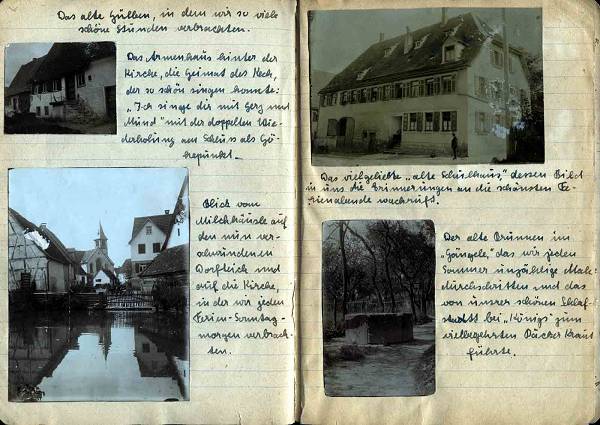 Das alte Hülben, in dem wir so viele
schöne Stunden verbrachten.
Das Armenhaus hinter der
Kirche, die Heimat des Hech,
der so schön singen konnte:
"Ich singe dir mit Herz und
Mund" mit der doppelten Wie-
derholung am Schluss als Hö-
hepunkt_
Blick vom
Milchhäusle auf
den nun ver-
schwindenen
Dorfteich und
auf die Kirche,
in der wir jeden
Ferien-Sonntag-
morgen verbrach-
ten.
Das vielgeliebte "alte Schulhaus," dessen Bild
in uns die Erinnerungen an die schönsten Fe-
rienabende wachruft.
Der alte Brunnen im
"Gängele," das wir jeden
Sommer unzählige Male
durchschritten und das
von unsrer schönen Schlaf-
stadt bei "Königs" zum
vielbegehrten Bäcker Kraut
führte.